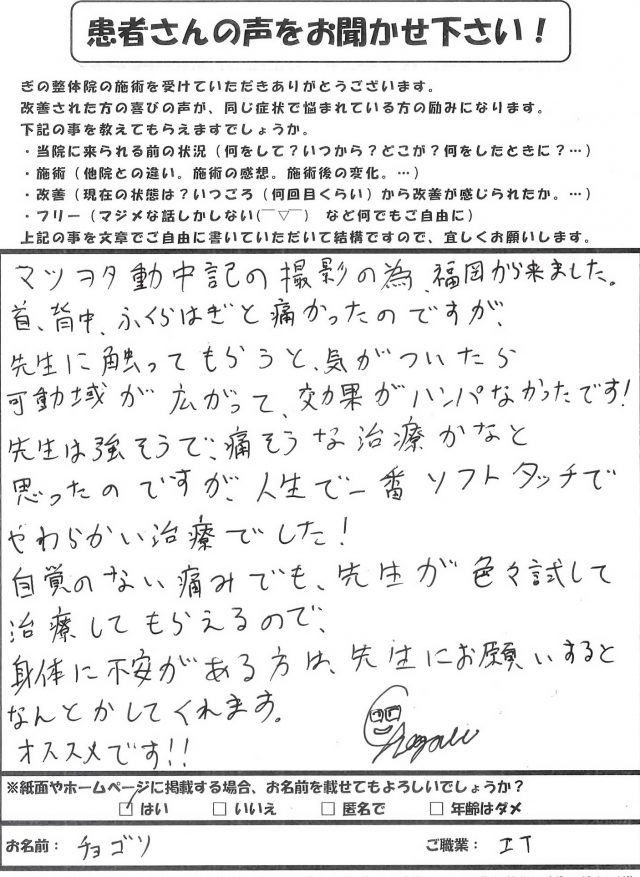 患者さんの声をお聞かせ下さい！
ぎの整体院の施術を受けていただきありがとうございます。
改善された方の喜びの声が、同じ症状で悩まれている方の励みになります。
下記の事を教えてもらえますでしょうか。
・当院に来られる前の状況（何をして？いつから？どこが？何をしたときに？…）
・施術（他院との違い。施術の感想。施術後の変化。…）
・改善（現在の状態は？いつごろ（何回目くらい）から改善が感じられたか。…）
・フリー（マジメな話しかしない(￣▽￣)　など何でもご自由に）
上記の事を文章でご自由に書いていただいて結構ですので、宜しくお願いします。
マツヨタ動中記の撮影の為、福岡から来ました。
首、背中、ふくらはぎと痛かったのですが、
先生に触ってもらうと、気がついたら
可動域が広がって、効果がハンパなかったです！
先生は強そうで、痛そうな治療かなと
思ったのですが、人生で一番ソフトタッチで
やわらかい治療でした！
自覚のない痛みでも、先生が色々試して
治療してもらえるので、
身体に不安がある方は、先生にお願いすると
なんとかしてくれます。
オススメです！！
※紙面やホームページに掲載する場合、お名前を載せてもよろしいでしょうか？
□はい　□いいえ　□匿名で　□年齢はダメ
お名前：チョゴリ　ご職業：IT